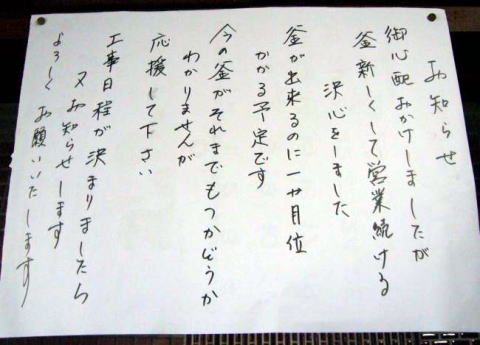 お知らせ
御心配おかけしましたが
釜新しくして営業続ける
決心をしました
釜が出来るのに一ヶ月位
かかる予定です
今の釜がそれまでもつかどうか
わかりませんが
応援して下さい
工事日程が決まりましたら
又お知らせします
よろしくお願いいたします